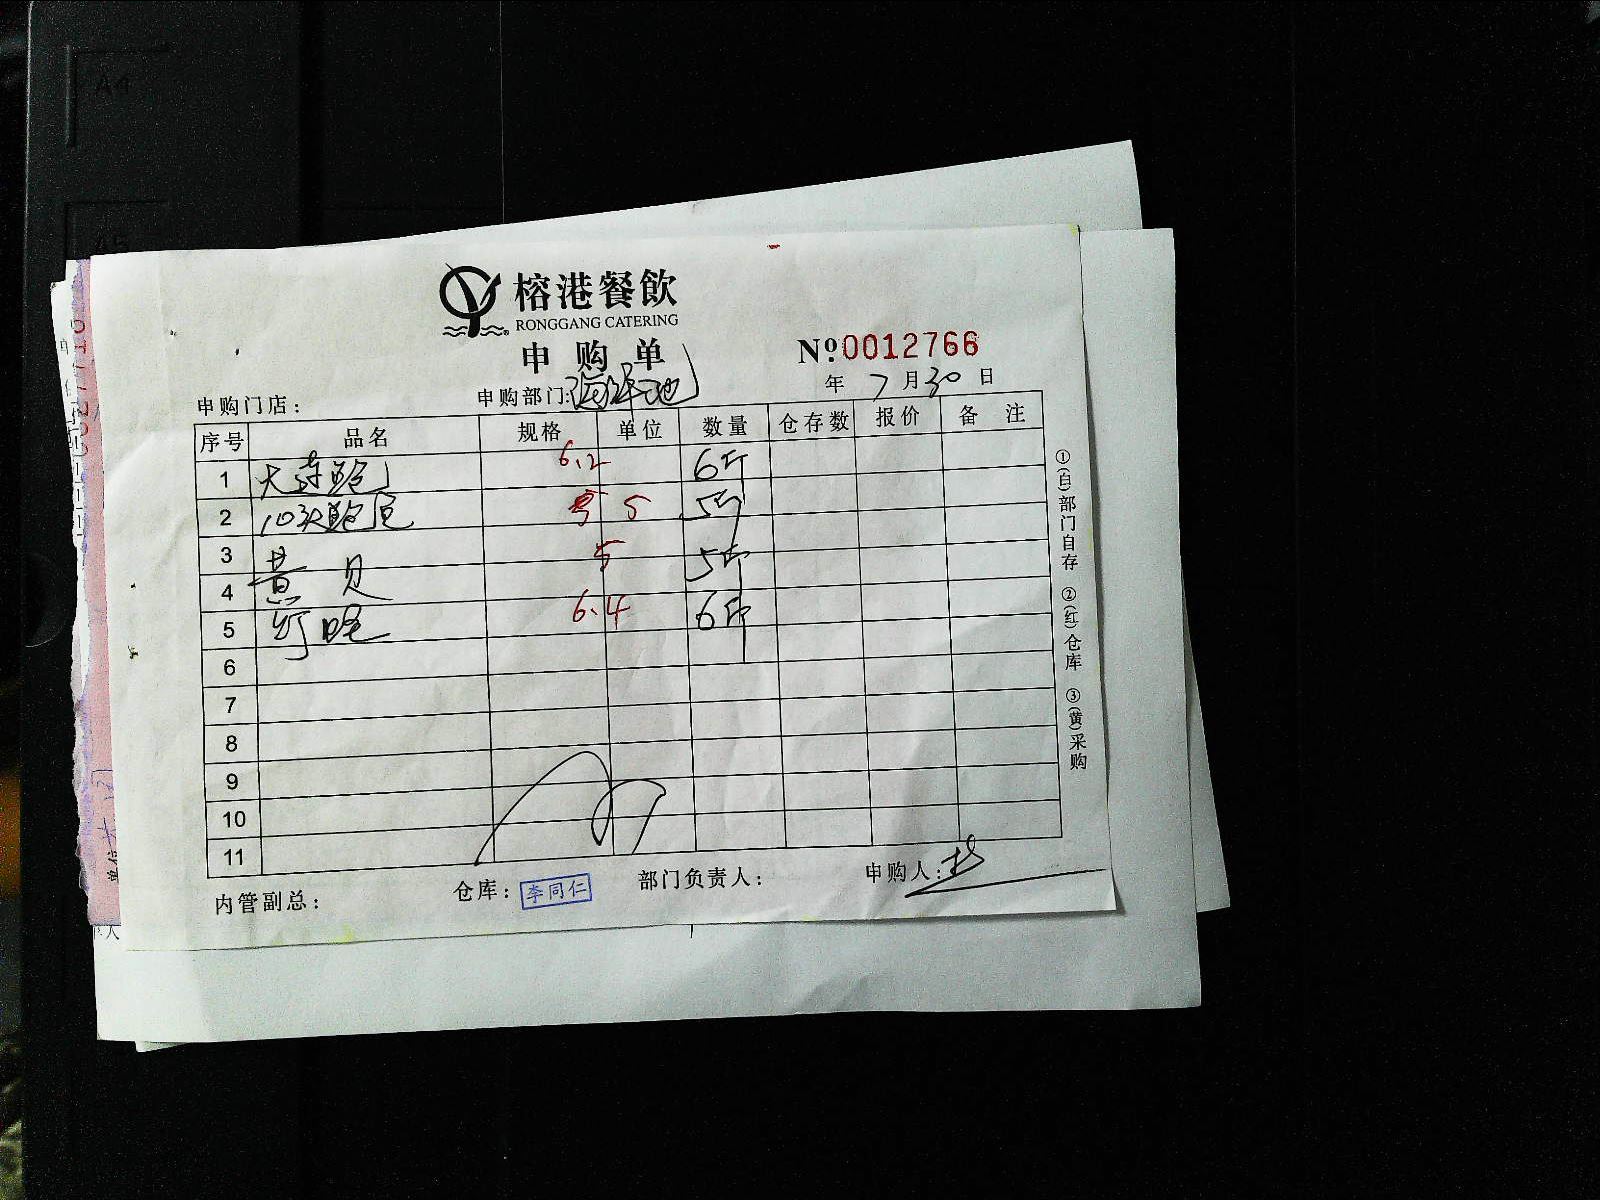 A4
A5
榕港餐飲
RONGGANG CATERING
申购单
№0012766
年 7 月 30 日
申购门店：
申购部门：海鲜池
序号 品名 规格 单位 数量 仓存数 报价 备 注
1 大连鲍 6.2 6斤
2 10头鲍 5 5斤
3 5
4 黄贝 5斤
5 6.4 6斤
6
7
8
9
10
11
内管副总：
仓库：李同仁
部门负责人：
申购人：
①(白)部门自存 ②(红)仓库 ③(黄)采购